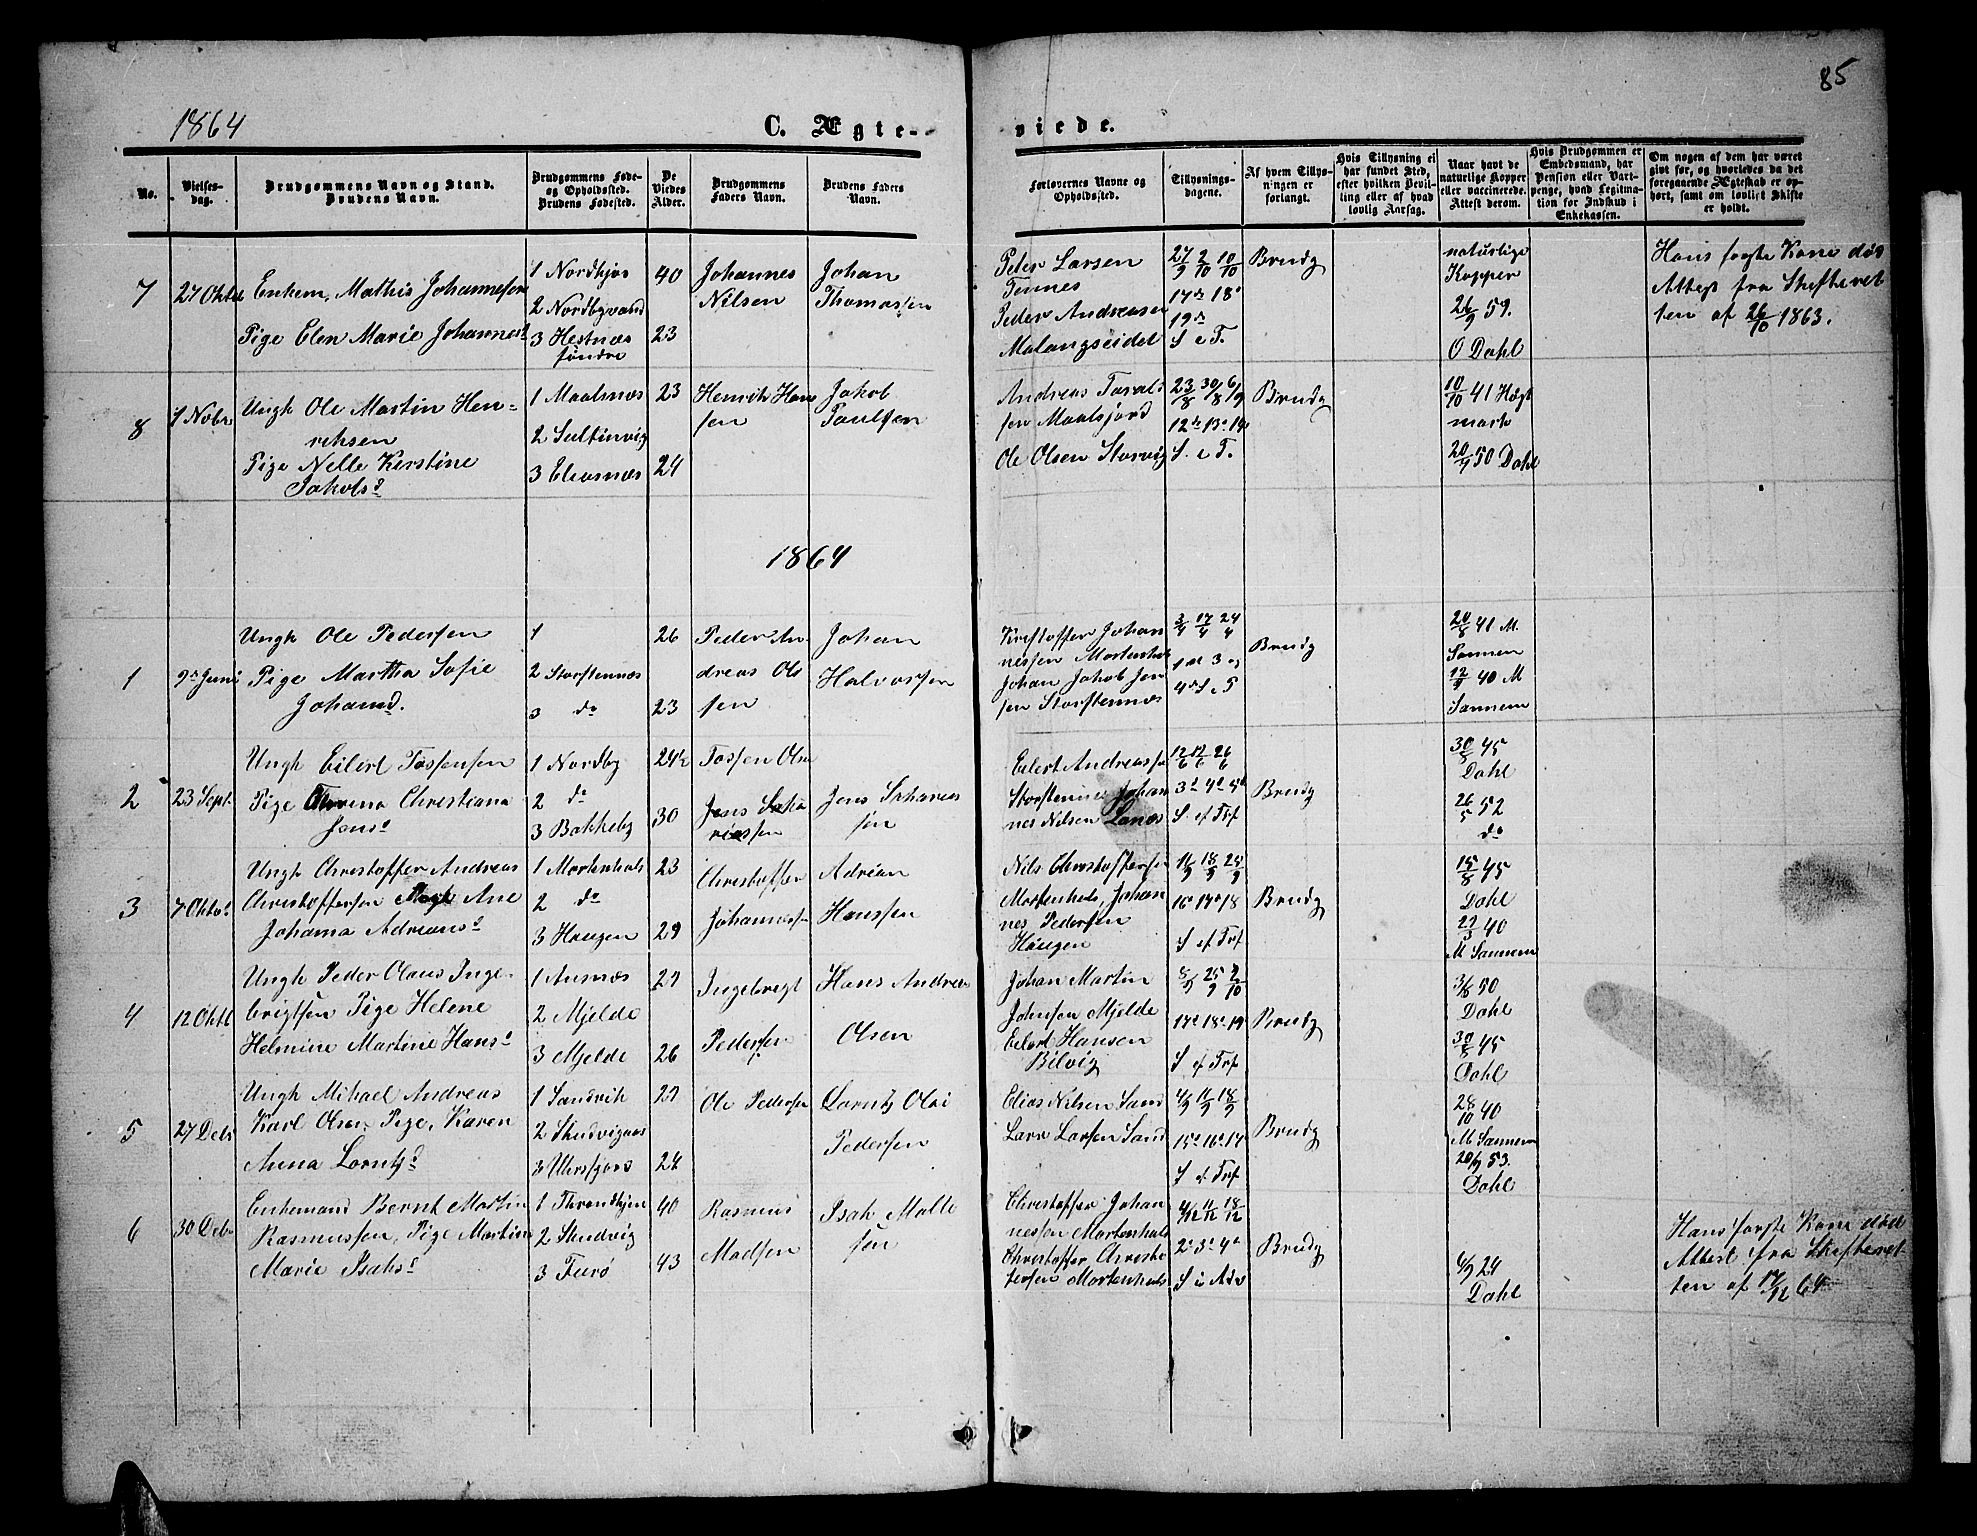 85
1864
C. Ægte-
viede.
No.
Vielses-
dag.
Brudgommens Navn og Stand.
Brudens Navn.
Brudgommens Føde-
og Opholdssted.
Brudens Fødested.
De
Viedes
Alder.
Brudgommens
Faders Navn.
Brudens Faders
Navn.
Forlovernes Navne og
Opholdssted.
Tillysnings-
dagene.
Af hvem Tillys-
ningen er
forlangt.
Hvis Tillysning ei
har fundet Sted,
efter hvilken Bevil-
ling eller af hvad
lovlig Aarsag.
Naar havt de
naturlige Kopper
eller vaccinerede.
Attest derom.
Hvis Brudgommen er
Embedsmand, har
Pension eller Vart-
penge, hvad Legitima-
tion for Indskud i
Enkekassen.
Om nogen af dem har været
gift før, og hvorledes da det
foregaaende Ægteskab er op-
hørt, samt om lovligt Skifte
er holdt.
7
27 Oktbr
Enkem, Mathis Johannesen
Pige Elen Marie Johannesd
1 Nordkjos
2 Nordbyvand
3 Hestnæs
søndre
40
23
Johannes
Nilsen
Johan
Thomassen
Peter Larsen
Tennes
Peder Andreasen
Malangseidet
27/9 2/10 10/10
17de 18de
19de
S e T.
Brudg
naturlige
Kopper
26/9 59.
O Dahl
Hans første Kone død
Attest fra Skifteret
ten af 26/10 1863.
8
1 Nobr
Ungk Ole Martin Hen-
riksen
Pige Nelle Kerstine
Jakobsd
1 Maalsnæs
2 Sultinvig
3 Elvasnæs
23
24
Henrik Han
sen
Jakob
Paulsen
Andreas Tarald
sen Maalsjord
Ole Olsen Storvig
23/8 30/8 6/9
12te 13de 14de
S. e T.
Brudg
10/10 41 Høgt
mark
20/9 50 Dahl
1864
1
9de Juni
Ungk Ole Pedersen
Pige Martha Sofie
Johansd.
1
2 Storstennæs
3 do
26
23
Peder An
dreas Ol
sen
Johan
Halvorsen
Kristoffer Johan
nessen Mortenhals
Johan Jakob Jen
sen Storstennæs
3/4 17/4 24/4
1ste 3 og
4de S e P
Brudg
20/8 41 M.
Sannem
12/9 40 M
Sannem
2
23 Sept.
Ungk Eilert Tossensen
Pige Thrina Christiana
Jensd
1 Nordby
2 do
3 Bakkeby
24½
30
Tossen Olsen
Jens Saka
riassen
Jens Sakarias
sen
Eilert Andreassen
Storstennes Johan
nes Nilsen Lanæs
12/6 12/6 26/6
3de 4de 5te
S. ef Tref
Brudg
30/5 45
Dahl
26/5 52
do
3
7 Oktbr
Ungk Christoffer Andreas
Christoffersen Pige Ane
Johanna Adriansd
1 Mortenhals
2 do
3 Haugen
23
29
Christoffer
Johannessen
Adrian
Hanssen
Nils Christoffersen
Mortenhals, Johan
nes Pedersen
Haugen
11/9 18/9 25/9
16de 17de 18
S ef Tref
Brudg
15/8 45
Dahl
22/3 40
M Sannem
4
12 Oktb
Ungk Peder Olaus Inge-
brigtsen Pige Helene
Helmine Martine Hansd
1 Ansnæs
2 Mjelde
3 Mjelde
27
26
Ingebregt
Pedersen
Hans Andreas
Olsen
Johan Martin
Johnsen Mjelde
Eilert Hansen
Bilvig
25/9 2/10
17de 18de 19
S ef Tref
Brudg
3/6 50
Dahl
30/5 45
Dahl
5
27 Debr
Ungk Mikael Andreas
Karl Olsen Pige, Karen
Anna Lorntsd
1 Sandvik
2 Skutvignæs
3 Ulvsfjors
27
24
Ole Pedersen
Lornts Olai
Pedersen
Elias Nilsen Sand
Lars Larsen Sand
4/9 11/9 18/9
15de 16de 17
S ef Tref
Brudg
28/10 40
M Sannem
20/9 53.
Dahl
6
30 Debr
Enkemand Bernt Martin
Rasmussen, Pige Martine
Marie Isaksd
1 Throndhjem
2 Skudvig
3 Furø
40
43
Rasmus
Madsen
Isak Malte
sen
Christoffer Johan
nessen Mortenhals
Christoffer Christo
fersen Mortenhals
4/12 11/12 18/12
2de 3de 4de
S i Adv
Brudg
4/9 24
Dahl
Hans første Kone død
Attest fra Skifteret-
ten af 17/12 64